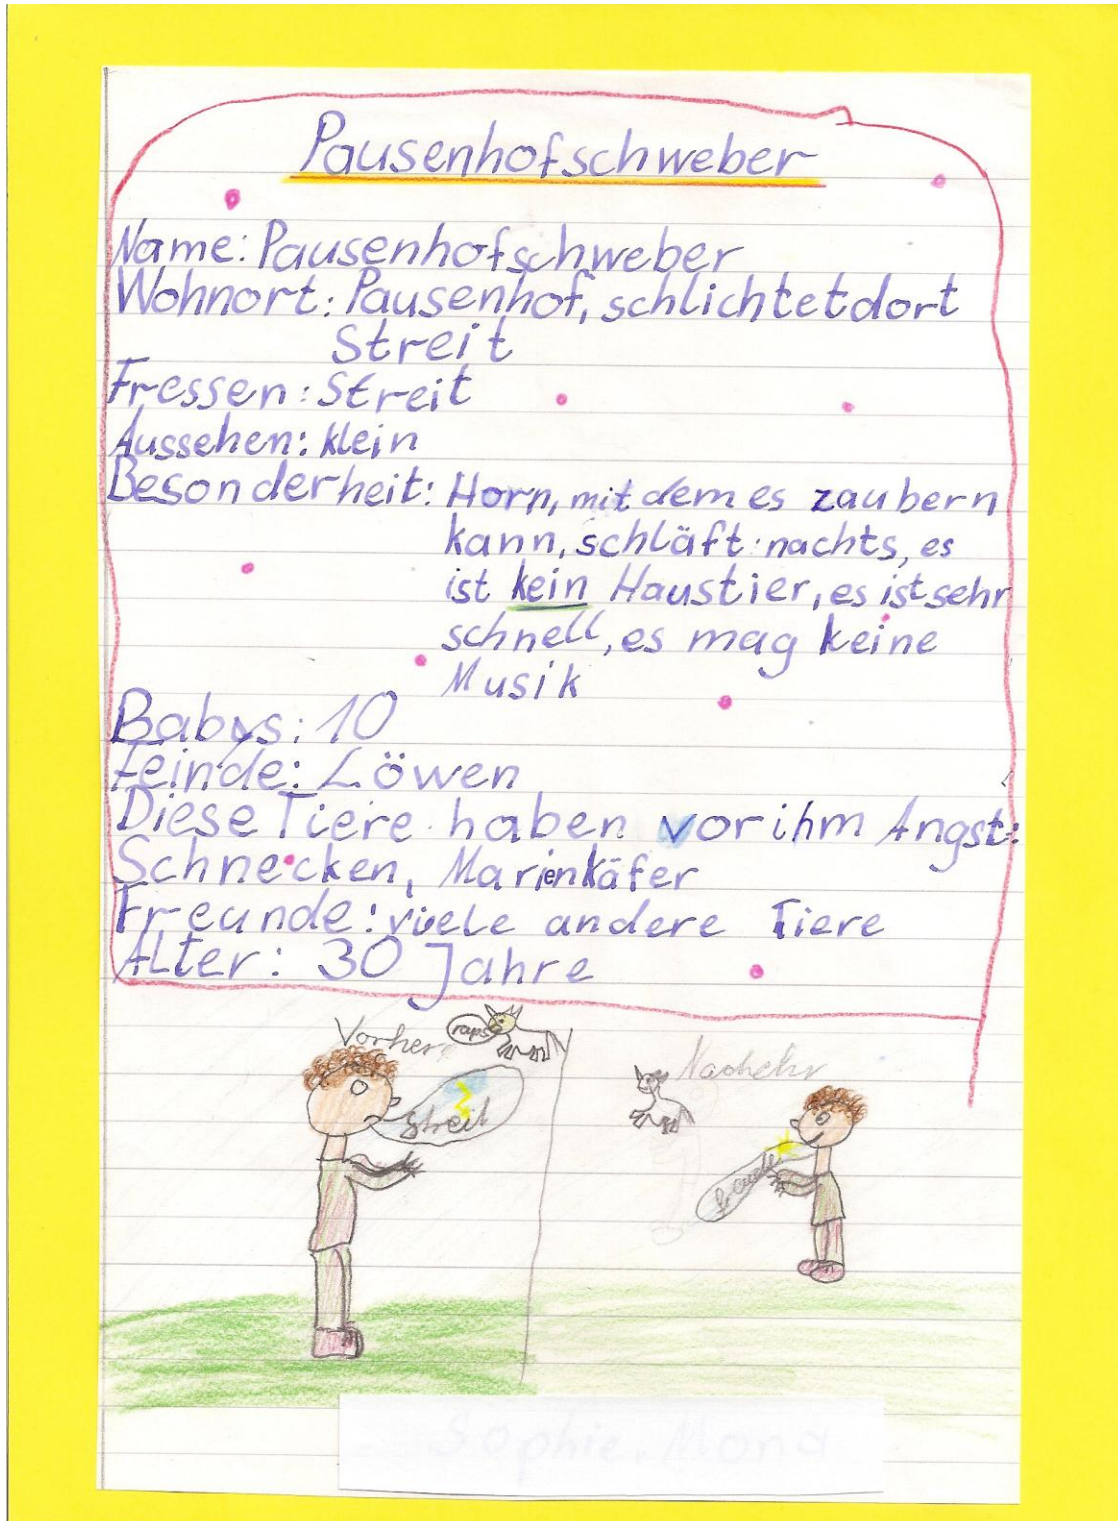 Pausenhofschweber
Name: Pausenhofschweber
Wohnort: Pausenhof, schlichtet dort
Streit
Fressen: Streit
Aussehen: klein
Besonderheit: Horn, mit dem es zaubern
kann, schläft nachts, es
ist kein Haustier, es ist sehr
schnell, es mag keine
Musik
Babys: 10
Feinde: Löwen
Diese Tiere haben vor ihm Angst:
Schnecken, Marienkäfer
Freunde: viele andere Tiere
Alter: 30 Jahre
Vorher
raps
Streit
Nachehr
Sophie, Mona